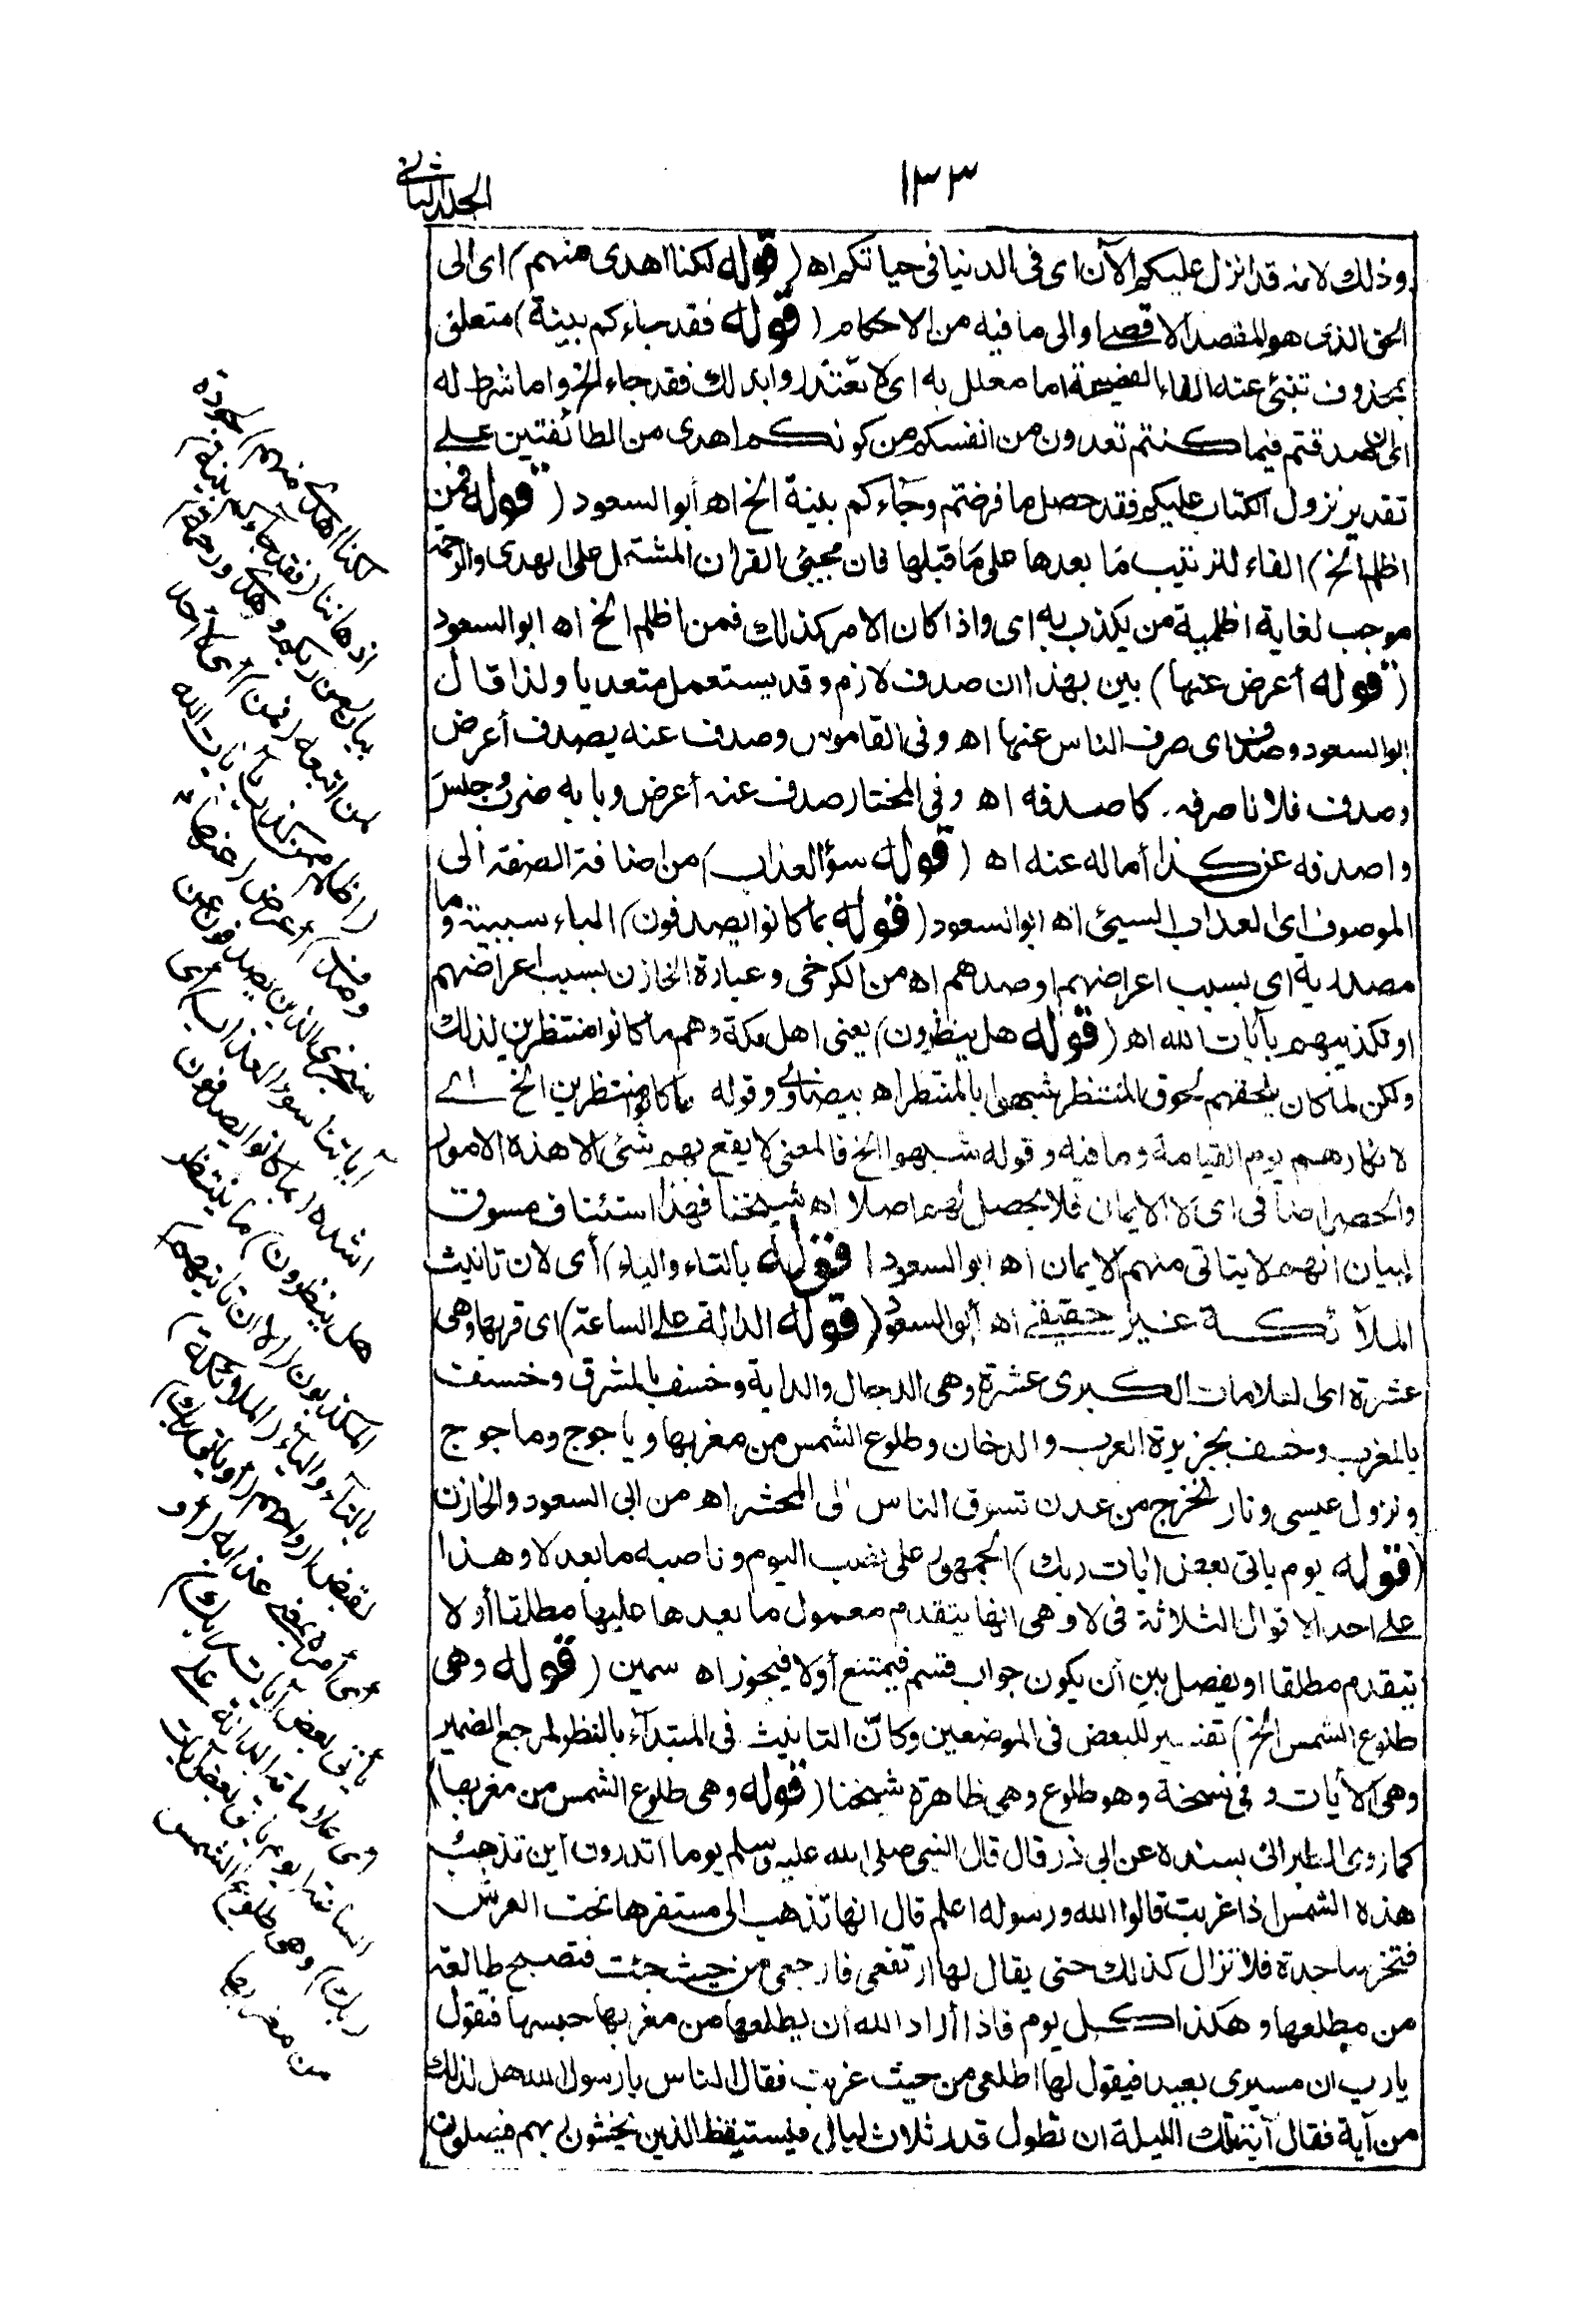 ١٣٣
الجلد الثانى
وذلك لانه قد انزل عليكم الآن اى فى الدنيا فى حياتكم اه (قوله لكنا اهدى منهم) اى الى
الحق الذى هو المقصد الاقصى او الى ما فيه من الاحكام (قوله فقد جاءكم بينة) متعلق
بمحذوف تنبئ عنه الفاء الفصيحة اما معلل به اى لا تعتذروا بذلك فقد جاء الخ واما شرط له
اى ان صدقتم فيما كنتم تعدون من انفسكم من كونكم اهدى من الطائفتين على
تقدير نزول الكتاب عليكم فقد حصل ما فرضتم وجاءكم بينة الخ اه أبو السعود (قوله فمن
اظلم الخ) الفاء للترتيب ما بعدها على ما قبلها فان مجيئ القران المشتمل على الهدى والرحمة
موجب لغاية اظلمية من يكذب به اى واذا كان الامر كذلك فمن اظلم الخ اه ابو السعود
(قوله أعرض عنها) بين بهذا ان صدف لازم وقد يستعمل متعديا ولذا قال
ابو السعود وصدف اى صرف الناس عنها اه وفى القاموس وصدف عنه يصدف أعرض
وصدف فلانا صرفه كاصدفه اه وفى المختار صدف عنه أعرض وبابه ضرب وجلس
واصدفه عن كذا أماله عنه اه (قوله سؤ العذاب) من اضافة الصفة الى
الموصوف اى العذاب السيئ اه ابو السعود (قوله بما كانوا يصدفون) الباء سببية وما
مصدرية اى بسبب اعراضهم او صدهم اه من الكرخى وعبارة الخازن بسبب اعراضهم
او تكذيبهم بآيات الله اه (قوله هل ينظرون) يعنى اهل مكة وهم ما كانوا منتظرين لذلك
ولكن لما كان يلحقهم لحوق المنتظر شبهوا بالمنتظر اه بيضاوى وقوله ما كانوا منتظرين الخ اى
لانكارهم يوم القيامة وما فيه وقوله شبهوا الخ فالمعنى لا يقع بهم شئ الا هذه الامور
والحصر اضافى اى لا الايمان فلا يحصل لهم اصلا اه شيخنا فهذا استئناف مسوق
لبيان انهم لا يتاتى منهم الايمان اه ابو السعود (قوله بالتاء والياء) أى لان تانيث
الملآئكة غير حقيقى اه أبو السعود (قوله الدالة على الساعة) اى قربها وهى
عشرة اى العلامات الكبرى عشرة وهى الدجال والدابة وخسف بالمشرق وخسف
بالمغرب وخسف بجزيرة العرب والدخان وطلوع الشمس من مغربها وياجوج وماجوج
ونزول عيسى ونار تخرج من عدن تسوق الناس الى المحشر اه من ابى السعود والخازن
(قوله يوم ياتى بعض ايات ربك) الجمهور على نصب اليوم وناصبه ما بعد لا وهذا
على احد الاقوال الثلاثة فى لا وهى انها يتقدم معمول ما بعدها عليها مطلقا أو لا
يتقدم مطلقا او يفصل بين أن يكون جواب قسم فيمتنع أو لا فيجوز اه سمين (قوله وهى
طلوع الشمس الخ) تفسير للبعض فى الموضعين وكان التانيث فى المبتدآء بالنظر لمرجع الضمير
وهى الأيات وفى نسخة وهو طلوع وهى ظاهرة شيخنا (قوله وهى طلوع الشمس من مغربها)
كما روى الطبرانى بسنده عن ابى ذر قال قال النبى صلى الله عليه وسلم يوما اتدرون أين تذهب
هذه الشمس اذا غربت قالوا الله ورسوله اعلم قال انها تذهب الى مستقرها تحت العرش
فتخر ساجدة فلا تزال كذلك حتى يقال لها ارتفعى فارجعى من حيث جئت فتصبح طالعة
من مطلعها وهكذا كل يوم فاذا أراد الله أن يطلعها من مغربها حبسها فتقول
يارب ان مسيرى بعيد فيقول لها اطلعى من حيث غربت فقال الناس يا رسول الله هل لذلك
من آية فقال آية تلك الليلة ان تطول قدر ثلاث ليالى فيستيقظ الذين يخشون ربهم فيصلون
لكنا اهدى منهم) لجودة
اذهاننا (فقد جآءكم بينة)
بيان (من ربكم وهدى ورحمة)
لمن اتبعه (فمن) أى لا أحد
(اظلم ممن كذب بآيات الله
وصدف) أعرض (عنها
سنجزى الذين يصدفون عن
آياتنا سوء العذاب) أى
اشده (بما كانوا يصدفون
هل ينظرون) ما ينتظر
المكذبون (الا ان تاتيهم)
بالتآء والياء (الملائكة)
لقبض ارواحهم (أو ياتى ربك)
أى أمره بمعنى عذابه (أو
يأتى بعض آيات ربك)
أى علاماته الدالة على
الساعة (يوم ياتى بعض آيات
ربك) وهى طلوع الشمس
من مغربها